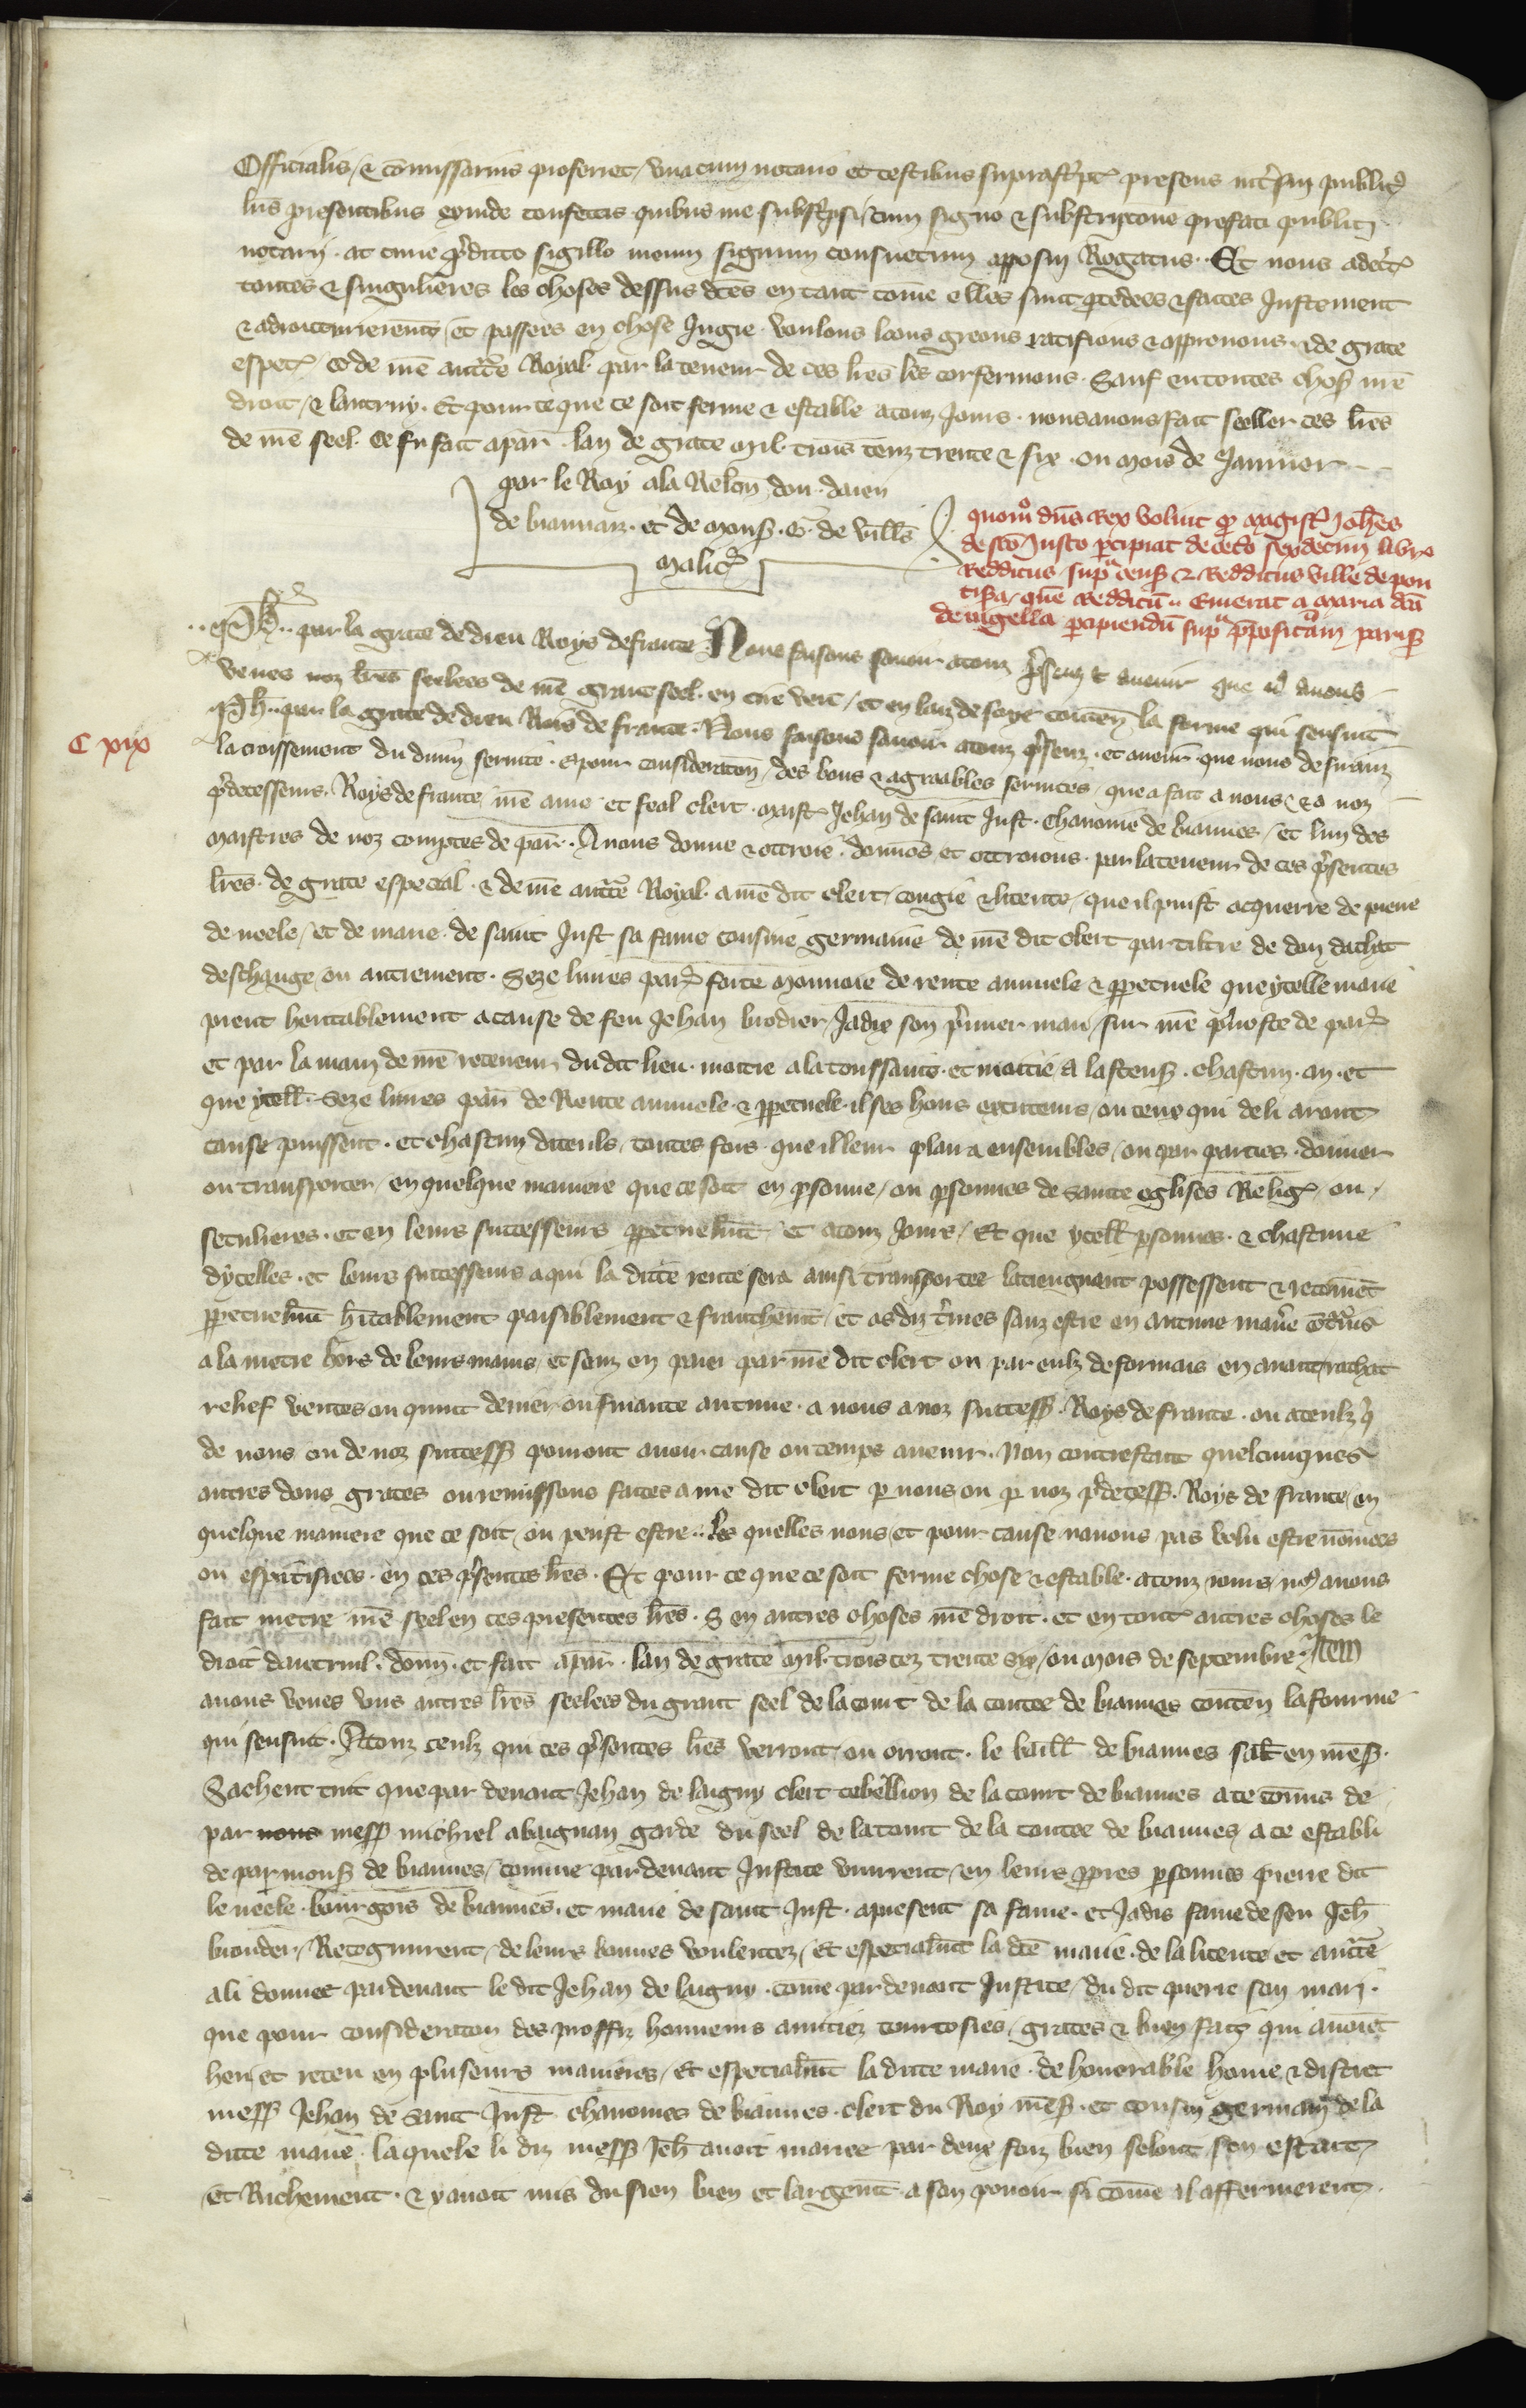 Officialis / & com̄issarius proferret / vnacum notario et testibus suprasc̓pt̓ presens inst̓m̃ public̓
his presentibus exinde confectis quibus me subsc̓psi / cum signo & subscripcōne prefati publici
notarij . ac cum p̓dicto sigillo meum signum consuetum apposui Rogatus . Et nous adec̓t̓
toutes & singulieres les choses dessus dc̄es en tant com̄e elles sunt p̱cedees & faictes Justement
& adroiturierem̄t / et passees en chose Jugie . voulons loons greons ratifions & approuuons . & de grace
espec̓ & de nr̄e auct̓te Royal . par la teneur de ces lr̄es les confermons . Sauf en toutes choses nr̄e
droit / & lautruy . Et pour ce que ce soit ferme & estable a touz Jours . nous auons fait seeller ces lr̄es
de nr̄e seel . Ce fu fait a par̄ . lan de grace Mil . trois cenz trente & six . ou mois de Januier
par le Roy a la Relon̄ dou . doien
de biauuaiz . et de mons̓ . G . de vill̄s
Malic̓
quom̊ dn̄s Rex voluit q̱ magist̓ Joh̄es
de sc̄o Justo p̱cipiat de cet̓o sexdecim libr̓
Redditus sup̱ cens̓ & Redditus ville de pon
tisara quem Reddit̄u Emerat a Maria dc̄a
de nigella p̱cipiend̄u sup̱ p̄posit̄am paris̓
C xix
. . Ph̄ . . par la grace de dieu Roys de france . Nous faisons sauoir a touz p̓senz & auenir que no̓ auons
veues noz lr̄es seelees de nr̄e grant seel . en cire vert / et en laz de soye conten̄ la forme qui sensuit
Ph̄ . par la grace de dieu Rois de france . Nous faisons sauoir a touz p̓senz . et auenir . que nous desiranz
lacroissement du diuin seruice . & pour consideracōn / des bons & agreables seruices / que a fait a nous & a noz
p̓decesseurs . Roys de france nr̄e ame et feal clerc . maist̓ Jehan de saint Just . chanoine de biauues / et lun des
maistres de noz comptes de par̄ . Auons donne & ottroie . donnōs et ottroions . par la teneur de ces p̓sentes
lr̄es . de grace especial . & de nr̄e auct̓te Royal . a nr̄e dit clerc / congie & licence / que il puist acquerre de pierre
de neele / et de marie de saint Just sa fame cousine germaine de nr̄e dit clerc par tiltre de don dachat
deschange ou autrement . Seze liures par̓ forte monnoie de rente annuele & p̱petuele que ycelle marie
prent heritablement a cause de feu Jehan brodier / Jadix son p̓mier mari / sur nr̄e p̓uoste de par̓
et par la main de nr̄e receueur du dit lieu . moitie a la toussains . et moitie a lascens̓ . chascun . an . et
que ycell̄ . Seze liures par̄ de Rente annuele . & p̱petuele . il ses hoirs executeurs / ou ceux qui de li aront
cause puissent . et chascun diceuls / toutes fois . que il leur plaira ensembles / ou par parties . donner
ou transporter / en quelque maniere que ce soit en p̱sonne / ou p̱sonnes de sainte eglises Relig̓ / ou
seculieres . et en leurs successeurs p̱petuelm̄t / et a touz Jours / Et que ycell̄ p̱sonnes . & chascune
dycelles . et leurs successeurs a qui la dicte rente sera ainsi transportee la tiengnent possessent & retiēnēt
p̱petuelm̄t h̓itablement paisiblement & franchem̄t / et as diz t̓mes sanz estre en aucune mani̓e contrains
a la metre hors de leurs mains / et sanz en paier par nr̄e dit clerc ou par eulz desormais en auant / rachat
relief ventes ou quint denier / ou finance aucune . a nous a noz success̓ . Roys de france . ou a ceulz q̓
de nous ou de noz success̓ porront auoir cause ou temps auenir . Non contrestant quelcunques
autres dons graces ou remissions faites a nr̄e dit clerc p̱ nous ou p̱ noz p̓decess̓ . Roys de france / en
quelque maniere que ce soit / ou peust estre . les quelles nous / et pour cause nauons pas velu estre nōmees
ou especifiees . en ces p̓sentes lr̄es . Et pour ce que ce soit ferme chose & estable . a touz iours / no̓ auons
fait metre nr̄e seel en ces presentes lr̄es . S en autres choses nr̄e droit . et en tout̓ autres choses le
droit dautrui . donn̄ . et fait a par̄ . lan de grace Mil . trois cez trente six / ou mois de septembre . Item
auons veues vns autres lr̄es seelees du grant seel de la court de la contee de biauues conten̄ la fourme
qui sensuit . A touz ceulz qui ces p̓sentes lr̄es verront / ou orront . le baill̄ de biauues sal̄t en nr̄es̓ .
Sachent tuit que par deuant Jehan de laigny clerc tebellion de la court de biauues a ce cōmis de
par nous mess̓ michiel abaignan garde du seel de la court de la contee de biauues a ce establi
de par mons̓ de biauues / comme par deuant Justice vinrent / en leurs p̱pres p̱sonnes pierre dit
le neele . bourgois de biauues . et marie de saint Just . apresent sa fame . et Jadis fame de feu Jeh̄
brouder / Recognurent / de leurs bonnes voulentez / Et especialm̄t la dc̄e marie . de la licence et auct̓te
a li donnee par deuant le dit Jehan de laigny . com̄e par deuant Justice / du dit pierre son mari .
que pour consideracion des proffiz honneurs amitiez courtoisies / graces & bien faiz qui auoiēt
heu et receu en pluseurs manieres / Et especialm̄t la dicte marie . de honorable home & discret
mess̓ Jehan de saint Just chanoines de biauues . clerc du Roy nr̄es̓ . et cousin germain de la
dicte marie / laquele li diz mess̓ Jeh̄ auoit mariee par deux foiz bien selonc son estaut
et Richement . & y auoit mis du sien bien et largem̄t a son pouoir si com̄e il affermerent .